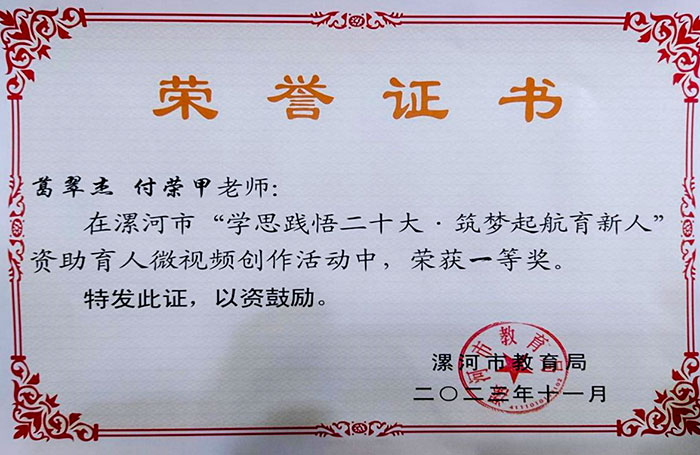 荣誉证书
葛翠杰 付荣甲老师：
在漯河市“学思践悟二十大·筑梦起航育新人”
资助育人微视频创作活动中，荣获一等奖。
特发此证，以资鼓励。
漯河市教育局
二〇二三年十一月
漯河市教育局